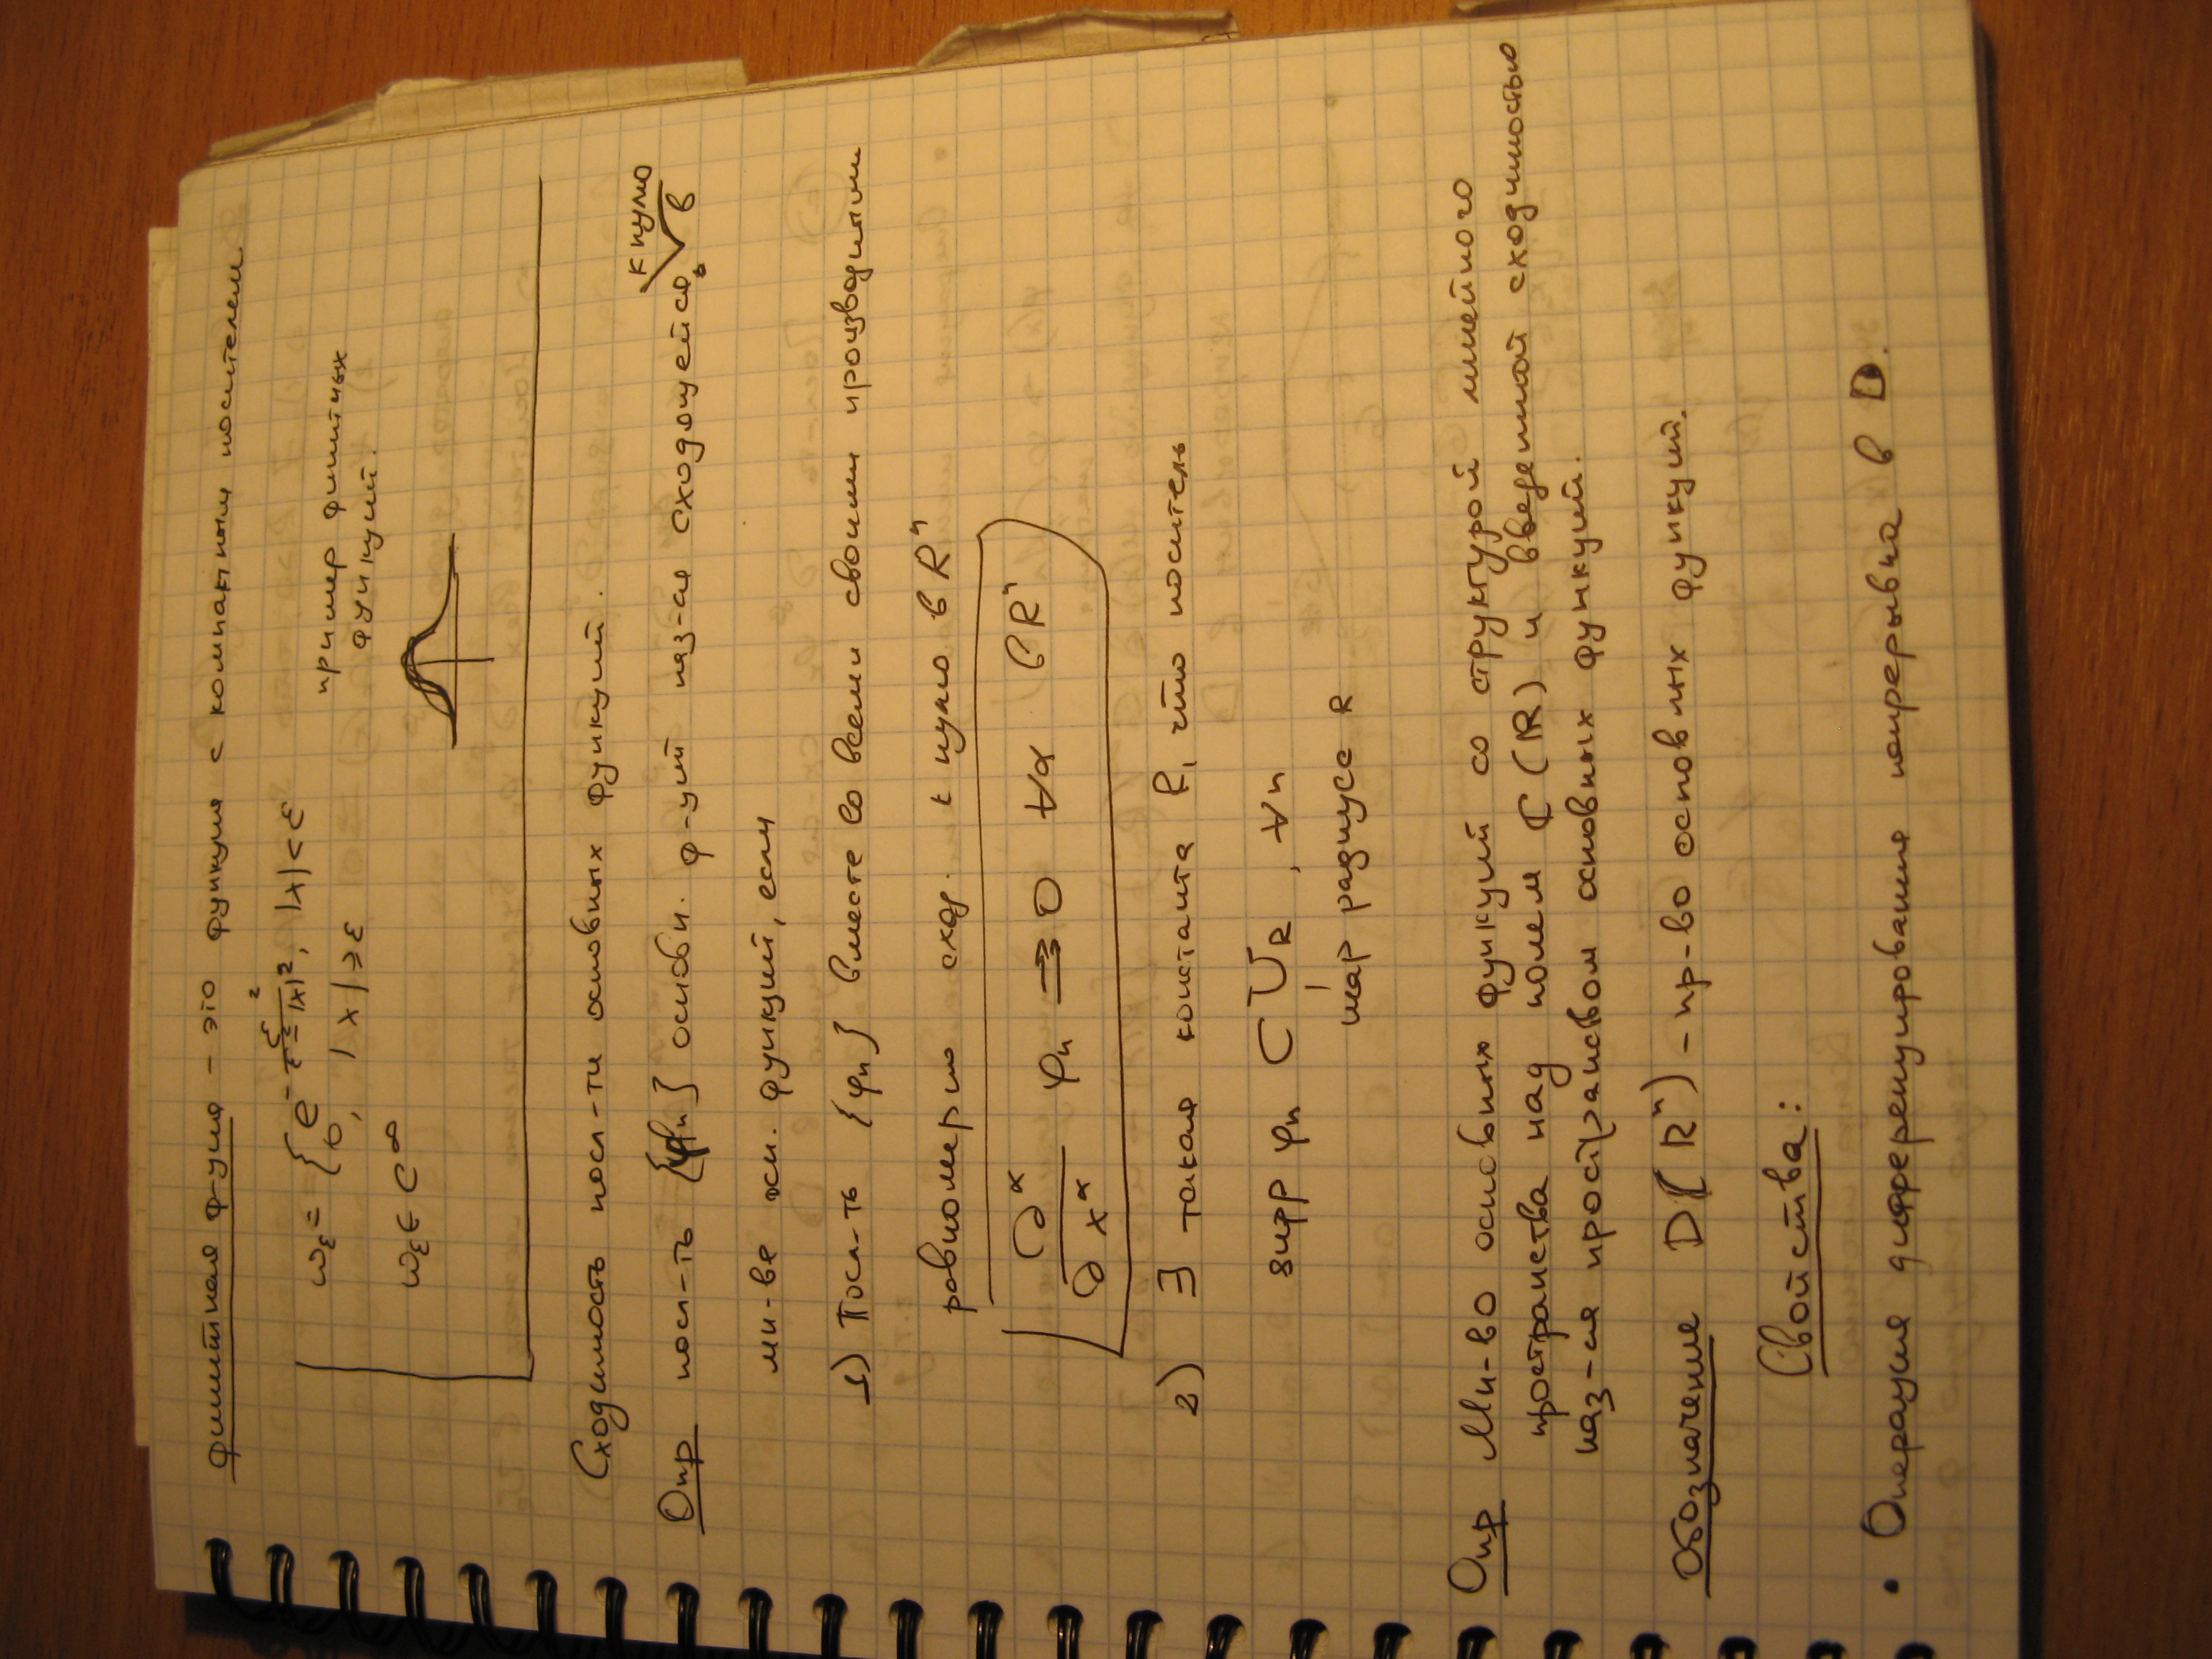 финитная ф-ция - это функция с компактным носителем
ωε = { e^{-ε²/(ε²-|x|²)}, |x|<ε
0, |x|≥ε
пример финитных
функций.
ωε ∈ C^∞
Сходимость посл-ти основных функций.
к нулю
Опр посл-ть {φn} основн. ф-ций наз-ся сходящейся в
мн-ве осн. функций, если
1) Посл-ть {φn} вместе со всеми своими производными
равномерно сход. к нулю в R^n
∂^α/∂x^α φn ⇉ 0 ∀α в R^n
2) ∃ такая константа R, что носитель
supp φn ⊂ U_R, ∀n
шар радиуса R
Опр Мн-во основных функций со структурой линейного
пространства над полем C (R) и введенной сходимостью
наз-ся пространством основных функций.
Обозначение D(R^n) - пр-во основных функций.
Свойства:
• Операция дифференцирования непрерывна в D.